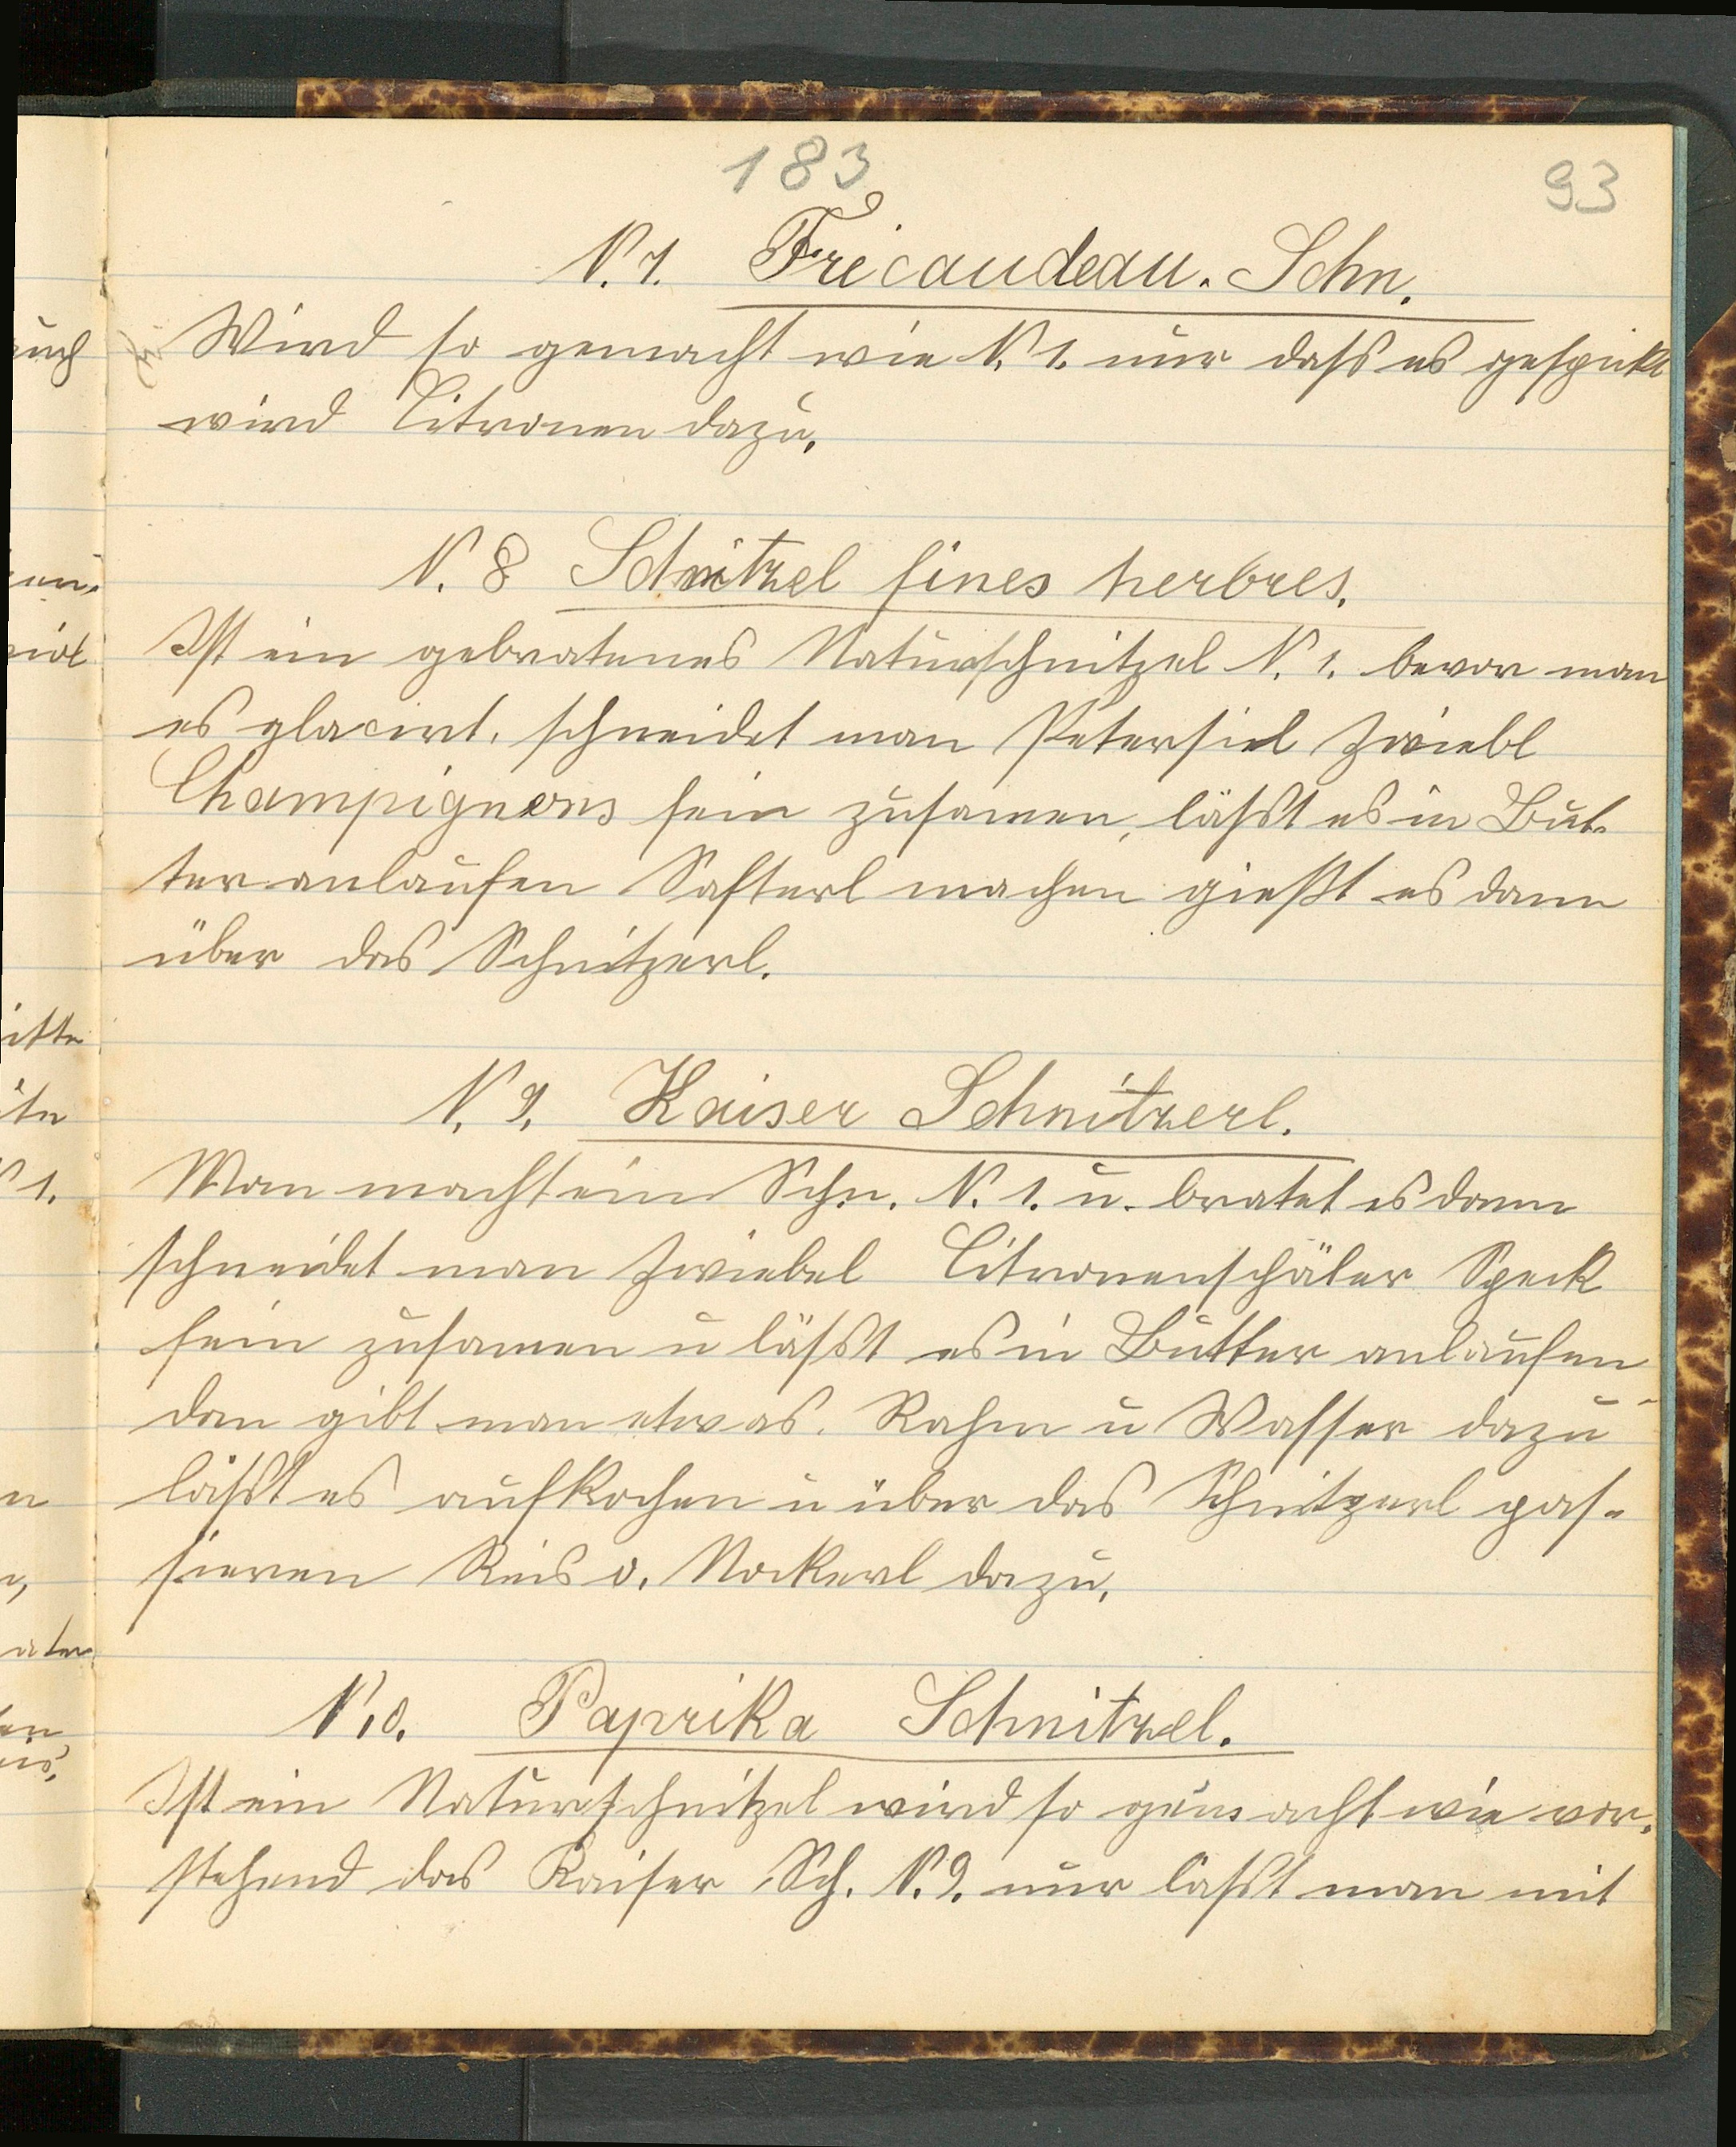 183
93
N. 7. Fricaudeau. Schn.
Wird so gemacht wie N. 1. nur dass es gespickt
wird Citronen dazu.
N. 8 Schnitzel fines herbres.
Ist ein gebratenes Naturschnitzel N. 1. bevor man
es glacirt. schneidet man Petersiel Zwiebl
Champignons fein zusamen, lässt es in But-
ter anlaufen Safterl machen gießt es dann
über das Schnitzerl.
N. 9. Kaiser Schnitzerl.
Man macht ein Schn. N. 1. u. bratet es dann
schneidet man Zwiebel Citronenschäler Speck
fein zusamen u lässt es in Butter anlaufen
dan gibt man etwas. Rahm u Wasser dazu
lässt es aufkochen u über das Schnitzerl pas-
sieren Reis o. Nockerl dazu.
N10. Paprika Schnitzel.
Ist ein Naturschnitzel wird so gemacht wie vor.
stehend das Kaiser Sch. N. 9. nur lasst man mit